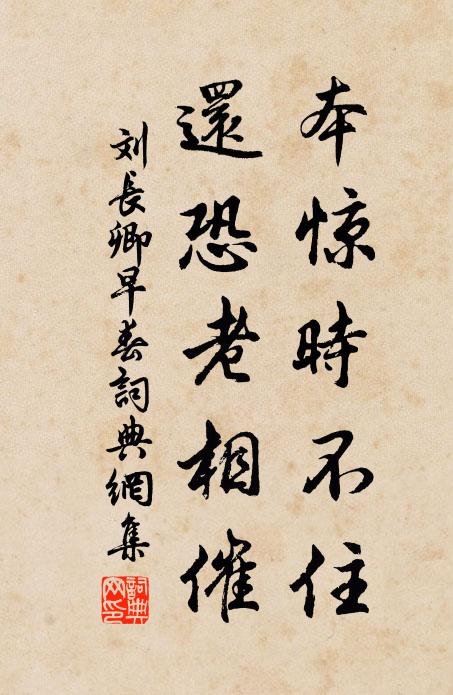 本惊時不住
還恐老相催
刘長卿早春詞典網集
詞典网印